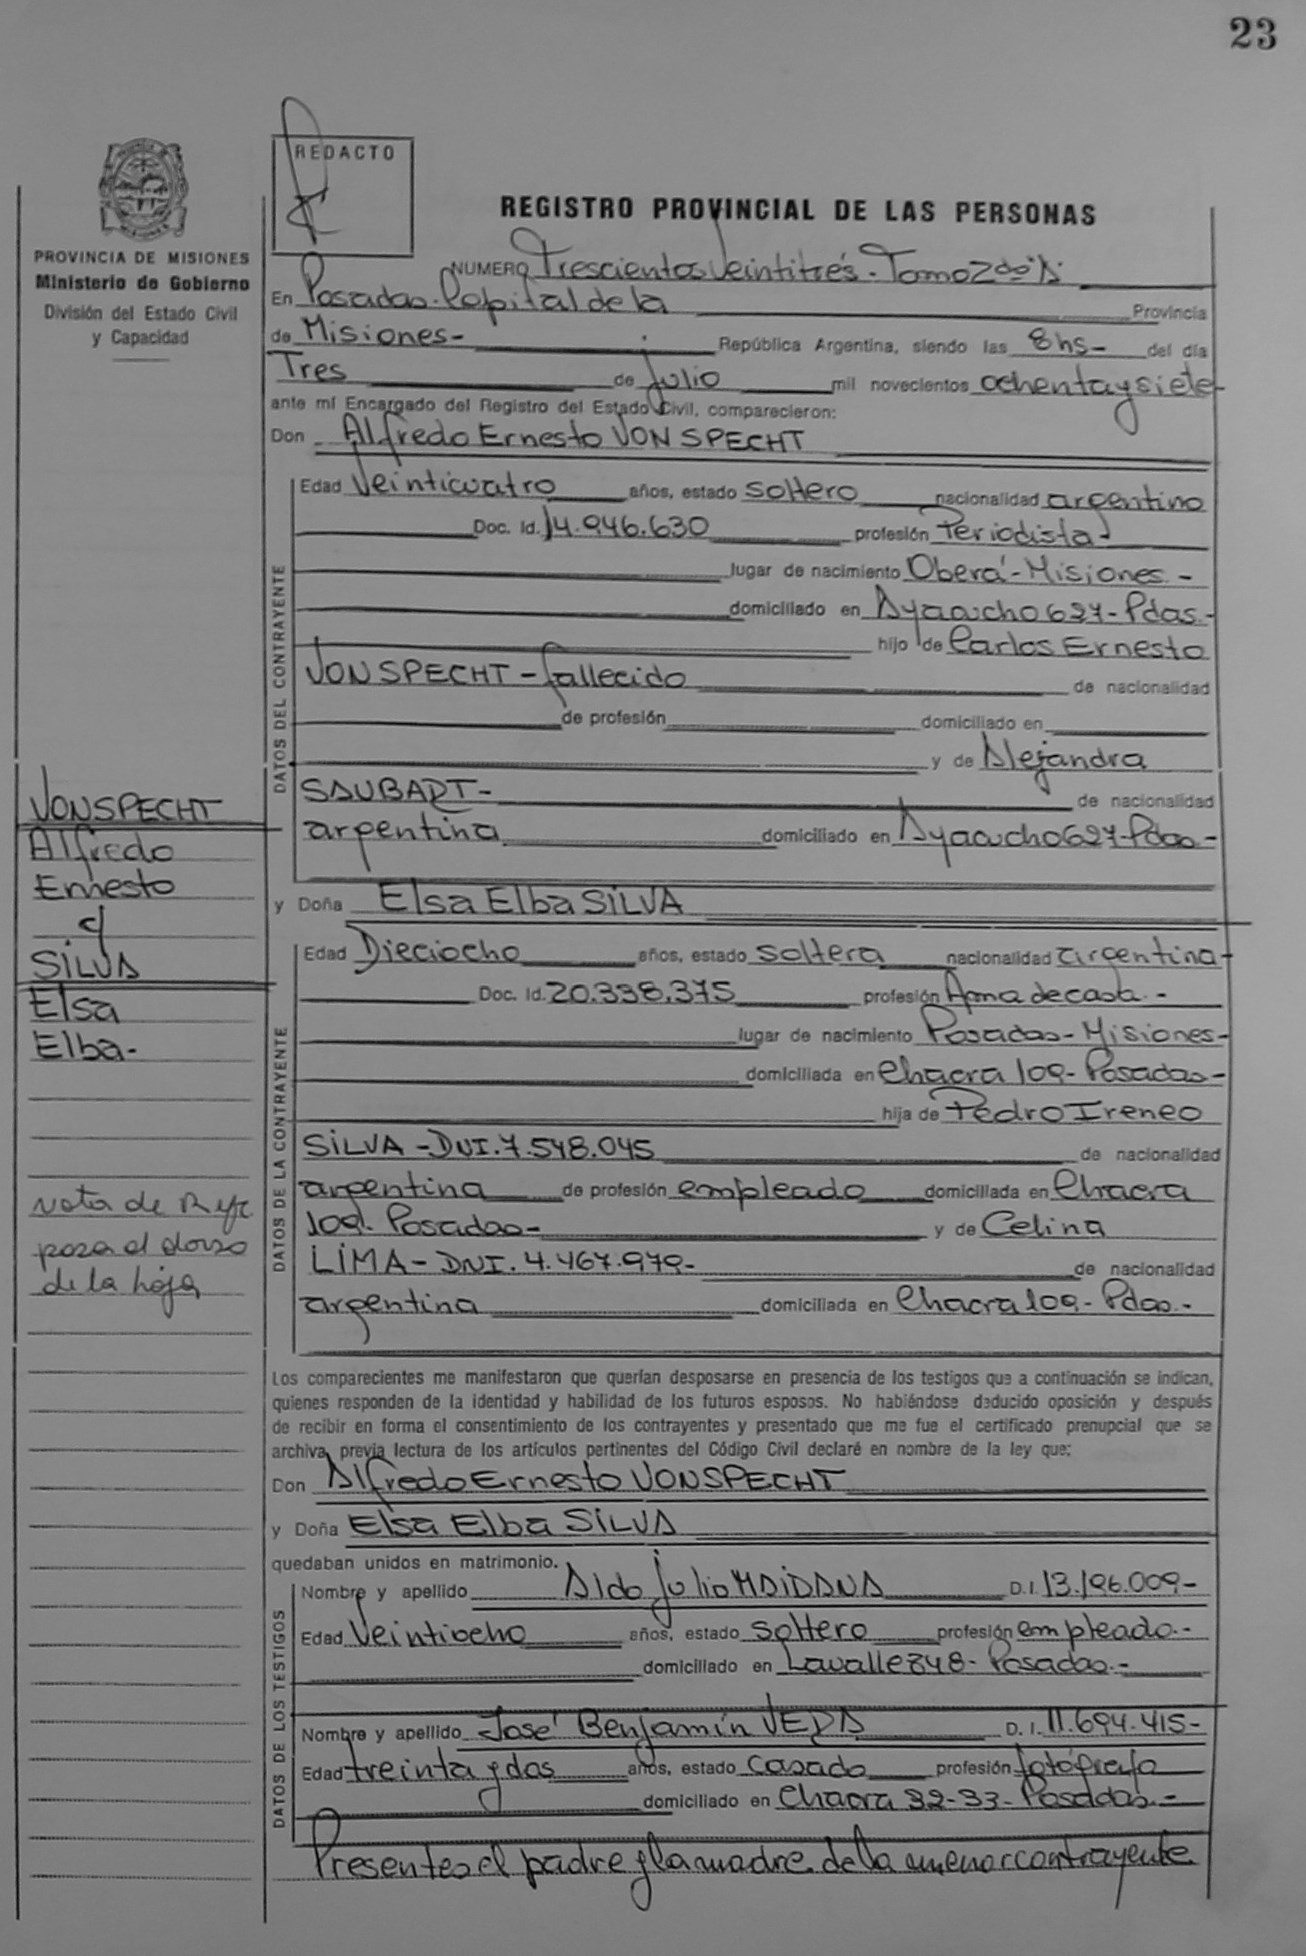 23
REDACTO
PROVINCIA DE MISIONES
Ministerio de Gobierno
División del Estado Civil
y Capacidad
REGISTRO PROVINCIAL DE LAS PERSONAS
NUMERO Trescientos Veintitrés - Tomo 2do "A"
En Posadas - Capital de la Provincia
de Misiones - República Argentina, siendo las 8 hs - del día
Tres de julio mil novecientos ochenta y siete
ante mí Encargado del Registro del Estado Civil, comparecieron:
Don Alfredo Ernesto VON SPECHT
DATOS DEL CONTRAYENTE
Edad Veinticuatro años, estado soltero nacionalidad argentino
Doc. Id. 14.946.630 profesión Periodista -
lugar de nacimiento Oberá - Misiones -
domiciliado en Ayacucho 627 - Pdas. -
hijo de Carlos Ernesto
VON SPECHT - fallecido de nacionalidad
de profesión domiciliado en
y de Alejandra
SAUBART - de nacionalidad
argentina domiciliado en Ayacucho 627 - Pdas -
VONSPECHT
Alfredo
Ernesto
y
SILVA
Elsa
Elba -
y Doña Elsa Elba SILVA
DATOS DE LA CONTRAYENTE
Edad Dieciocho años, estado soltera nacionalidad argentina -
Doc. Id. 20.338.375 profesión Ama de casa. -
lugar de nacimiento Posadas - Misiones -
domiciliada en Chacra 109 - Posadas -
hija de Pedro Ireneo
SILVA - DNI. 7.548.045 de nacionalidad
argentina de profesión empleado domiciliada en Chacra
109. Posadas - y de Celina
LIMA - DNI. 4.467.979 - de nacionalidad
argentina domiciliada en Chacra 109 - Pdas. -
nota de
pasa al dorso
de la hoja
Los comparecientes me manifestaron que querían desposarse en presencia de los testigos que a continuación se indican,
quienes responden de la identidad y habilidad de los futuros esposos. No habiéndose deducido oposición y después
de recibir en forma el consentimiento de los contrayentes y presentado que me fue el certificado prenupcial que se
archiva, previa lectura de los artículos pertinentes del Código Civil declaré en nombre de la ley que:
Don Alfredo Ernesto VONSPECHT
y Doña Elsa Elba SILVA
quedaban unidos en matrimonio.
DATOS DE LOS TESTIGOS
Nombre y apellido Aldo Julio MAIDANA D.I. 13.196.009 -
Edad Veintiocho años, estado soltero profesión empleado. -
domiciliado en Lavalle 848 - Posadas. -
Nombre y apellido José Benjamín VERA D. I. 11.694.415 -
Edad treinta y dos años, estado casado profesión fotógrafo
domiciliado en Chacra 32-33 - Posadas. -
Presentes el padre y la madre de la menor contrayente